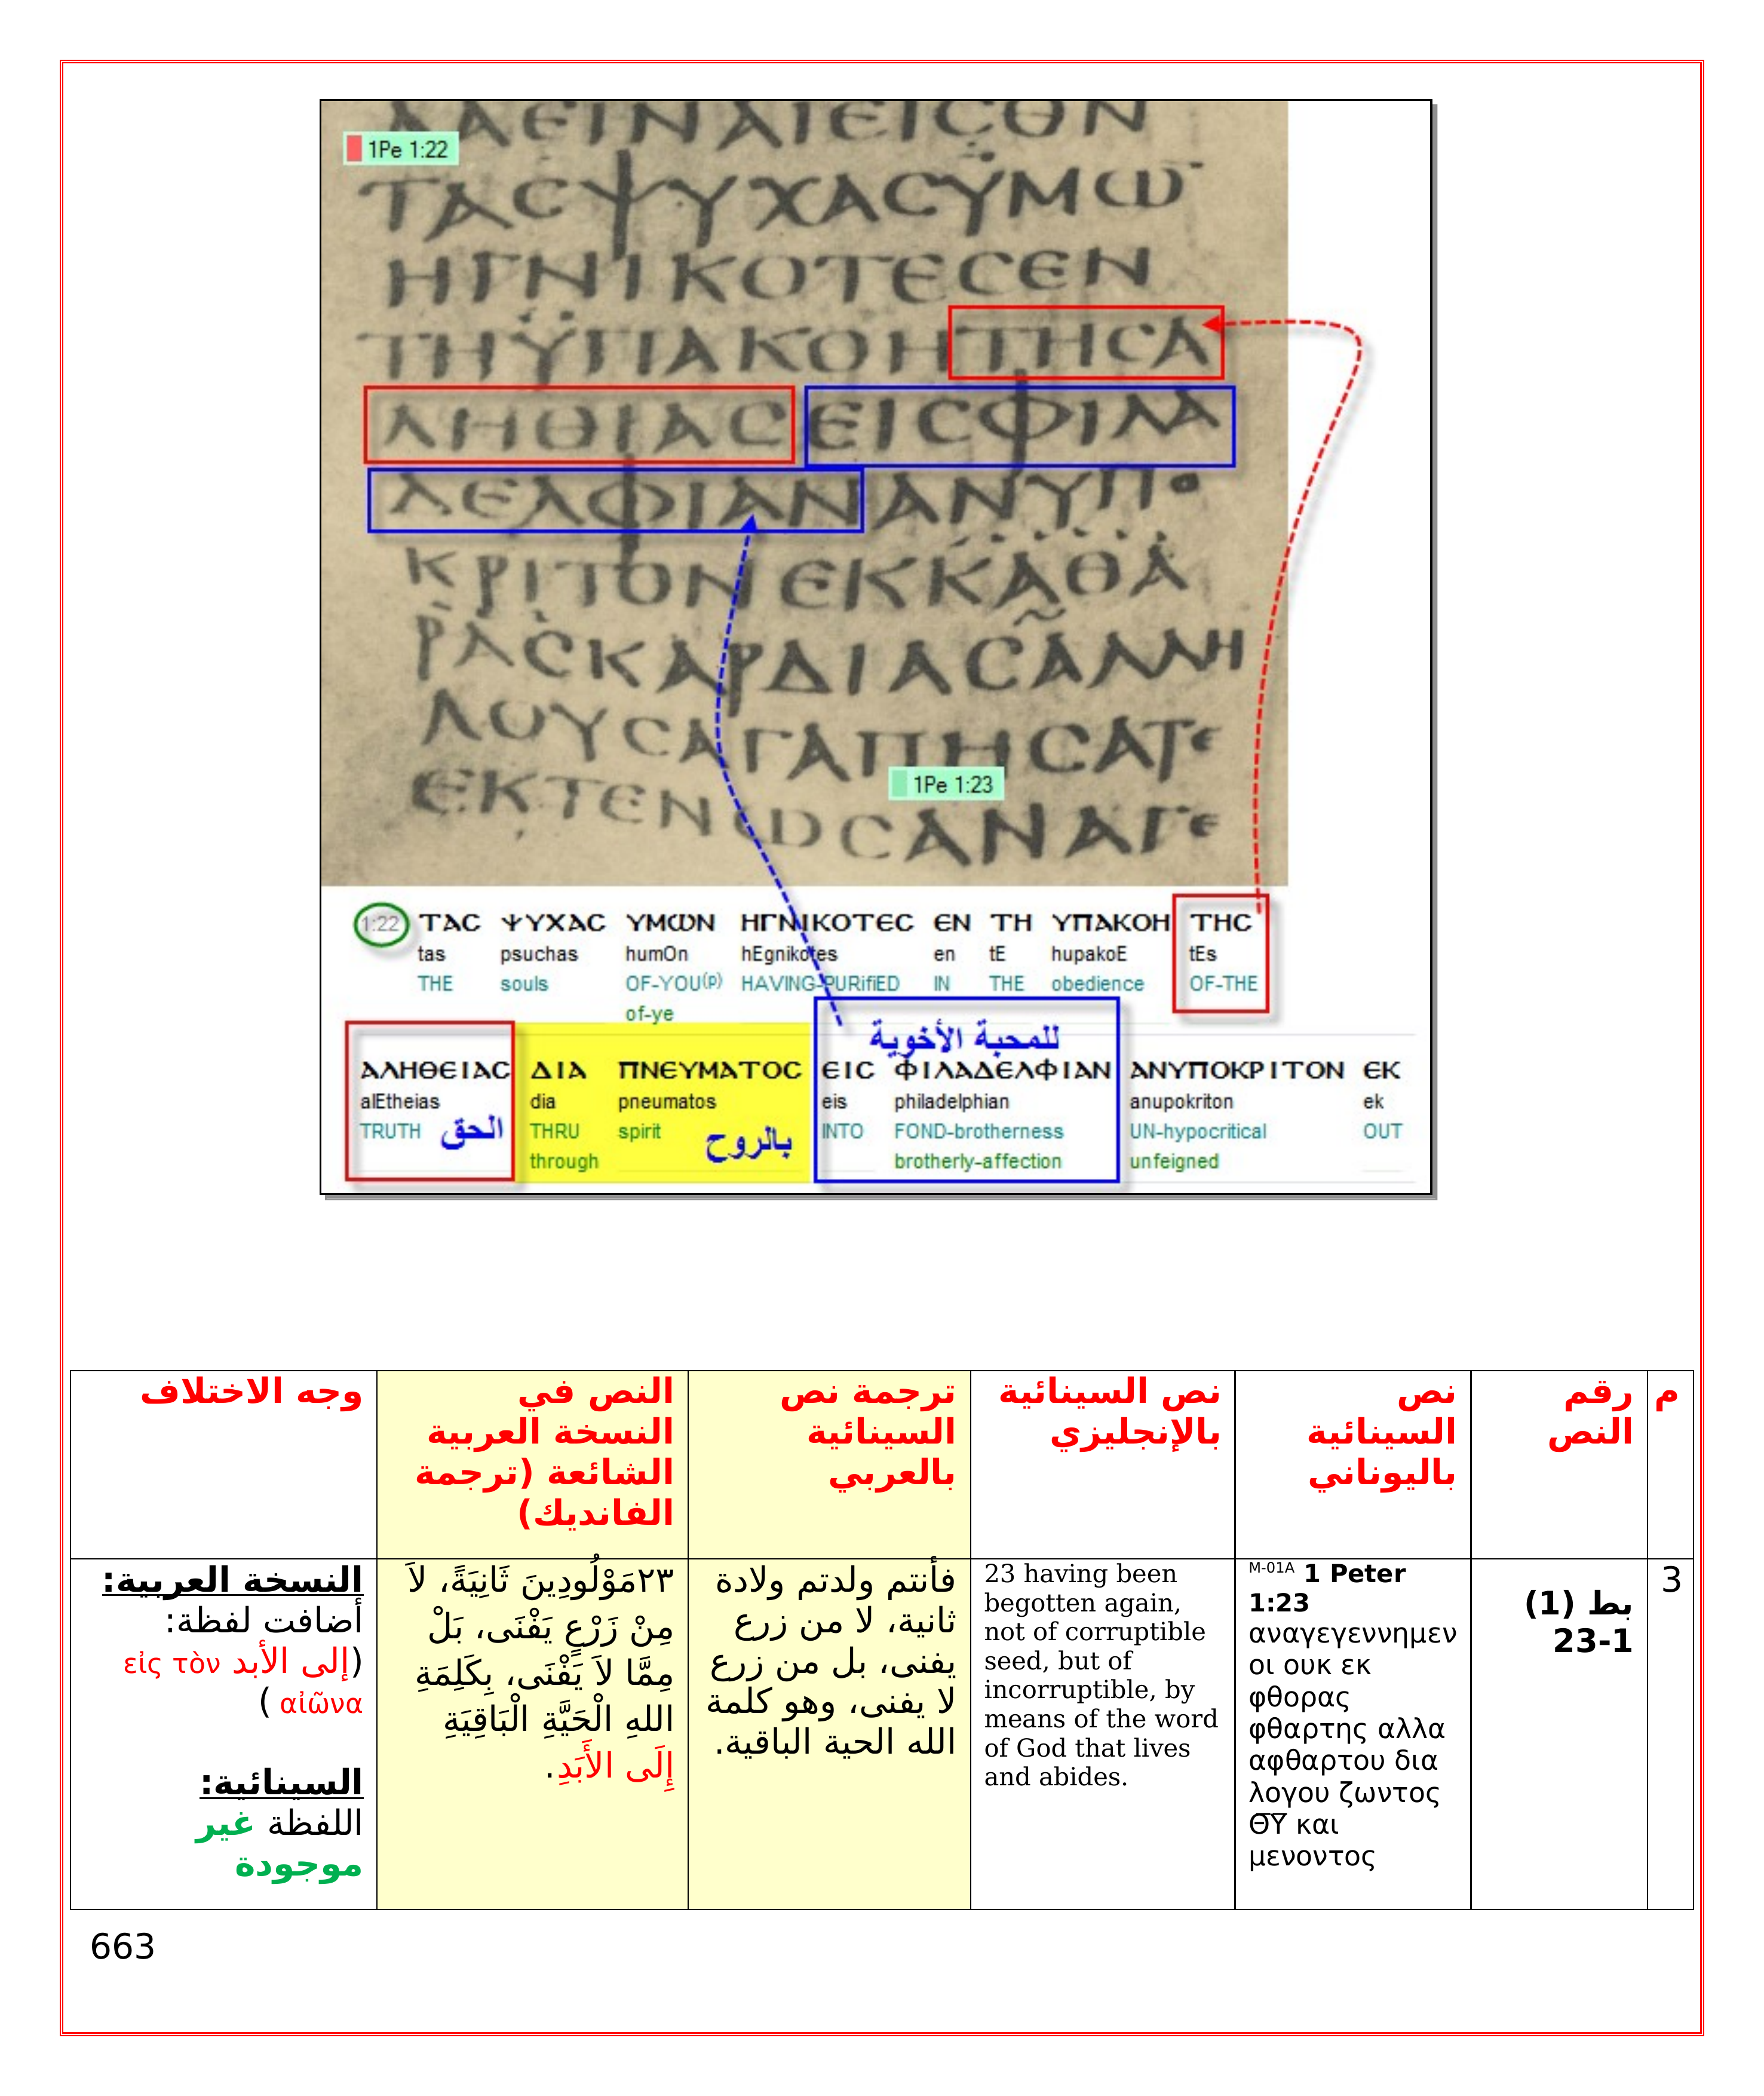 ΛΑΕΙΝΑΙΕΙCΘΝ
1Pe 1:22
ΤΑCΨΥΧΑCΫΜΩ¯
ΗΓΝΙΚΟΤΕCΕΝ
ΤΗΫΠΑΚΟΗΤΗCΑ
ΛΗΘΙΑCΕΙCΦΙΛΑ
ΔΕΛΦΙΑΝΑΝΥΠΟ
ΚΡΙΤΟΝΕΚΚΑΘΑ
ΡΑCΚΑΡΔΙΑCΑΛΛΗ
ΛΟΥCΑΓΑΠΗCΑΤΕ
1Pe 1:23
ΕΚΤΕΝΩCΑΝΑΓΕ
1:22 ΤΑC ΨΥΧΑC ΥΜΩΝ ΗΓΝΙΚΟΤΕC ΕΝ ΤΗ ΥΠΑΚΟΗ ΤΗC
tas psuchas humOn hEgnikotes en tE hupakoE tEs
THE souls OF-YOU(p) HAVING-PURifiED IN THE obedience OF-THE
of-ye
للمحبة الأخوية
ΑΛΗΘΕΙΑC ΔΙΑ ΠΝΕΥΜΑΤΟC ΕΙC ΦΙΛΑΔΕΛΦΙΑΝ ΑΝΥΠΟΚΡΙΤΟΝ ΕΚ
alEtheias dia pneumatos eis philadelphian anupokriton ek
TRUTH الحق THRU spirit بالروح INTO FOND-brotherness UN-hypocritical OUT
through brotherly-affection unfeigned
م
رقم
النص
نص
السينائية
باليوناني
نص السينائية
بالإنجليزي
ترجمة نص
السينائية
بالعربي
النص في
النسخة العربية
الشائعة (ترجمة
الفانديك)
وجه الاختلاف
3
بط (1)
23-1
M-01A 1 Peter
1:23
αναγεγεννημεν
οι ουκ εκ
φθορας
φθαρτης αλλα
αφθαρτου δια
λογου ζωντος
Θ̅Υ̅ και
μενοντος
23 having been
begotten again,
not of corruptible
seed, but of
incorruptible, by
means of the word
of God that lives
and abides.
فأنتم ولدتم ولادة
ثانية، لا من زرع
يفنى، بل من زرع
لا يفنى، وهو كلمة
الله الحية الباقية.
٢٣مَوْلُودِينَ ثَانِيَةً، لاَ
مِنْ زَرْعٍ يَفْنَى، بَلْ
مِمَّا لاَ يَفْنَى، بِكَلِمَةِ
اللهِ الْحَيَّةِ الْبَاقِيَةِ
إِلَى الأَبَدِ.
النسخة العربية:
أضافت لفظة:
(إلى الأبد εἰς τὸν
αἰῶνα )
السينائية:
اللفظة غير
موجودة
663